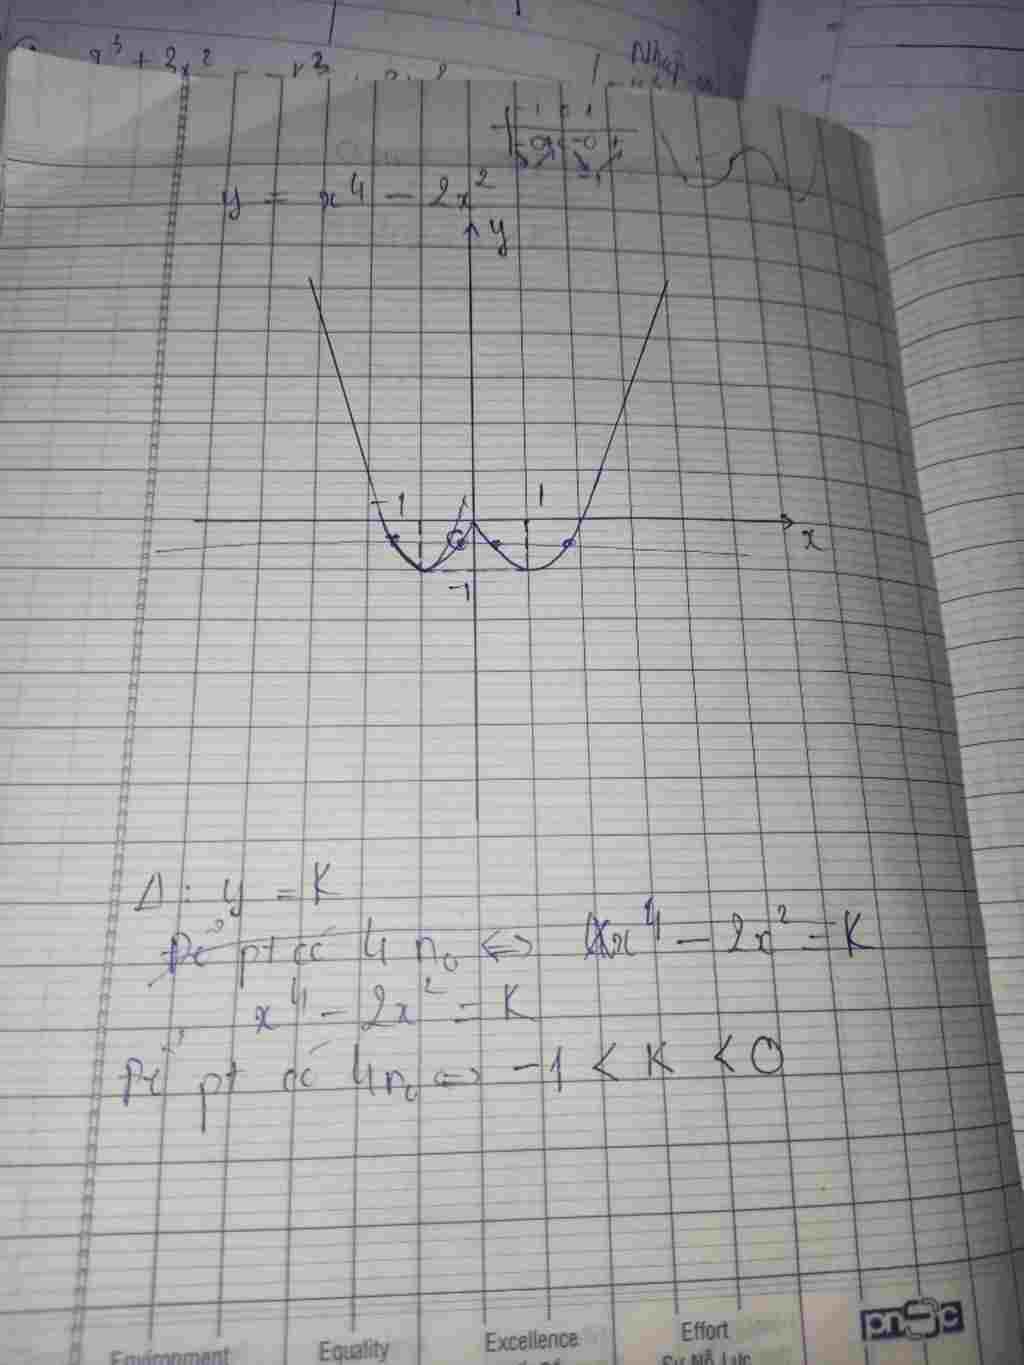 x³ + 3x²
-1 0 1
y = x⁴ - 2x²
y
-1 1
x
-1
Δ: y = K
Để pt có 4 n₀ ⇔ x⁴ - 2x² = K
x⁴ - 2x² = K
Để pt có 4 n₀ ⇔ -1 < K < 0
Environment Equality Excellence Effort
Sự Nỗ Lực